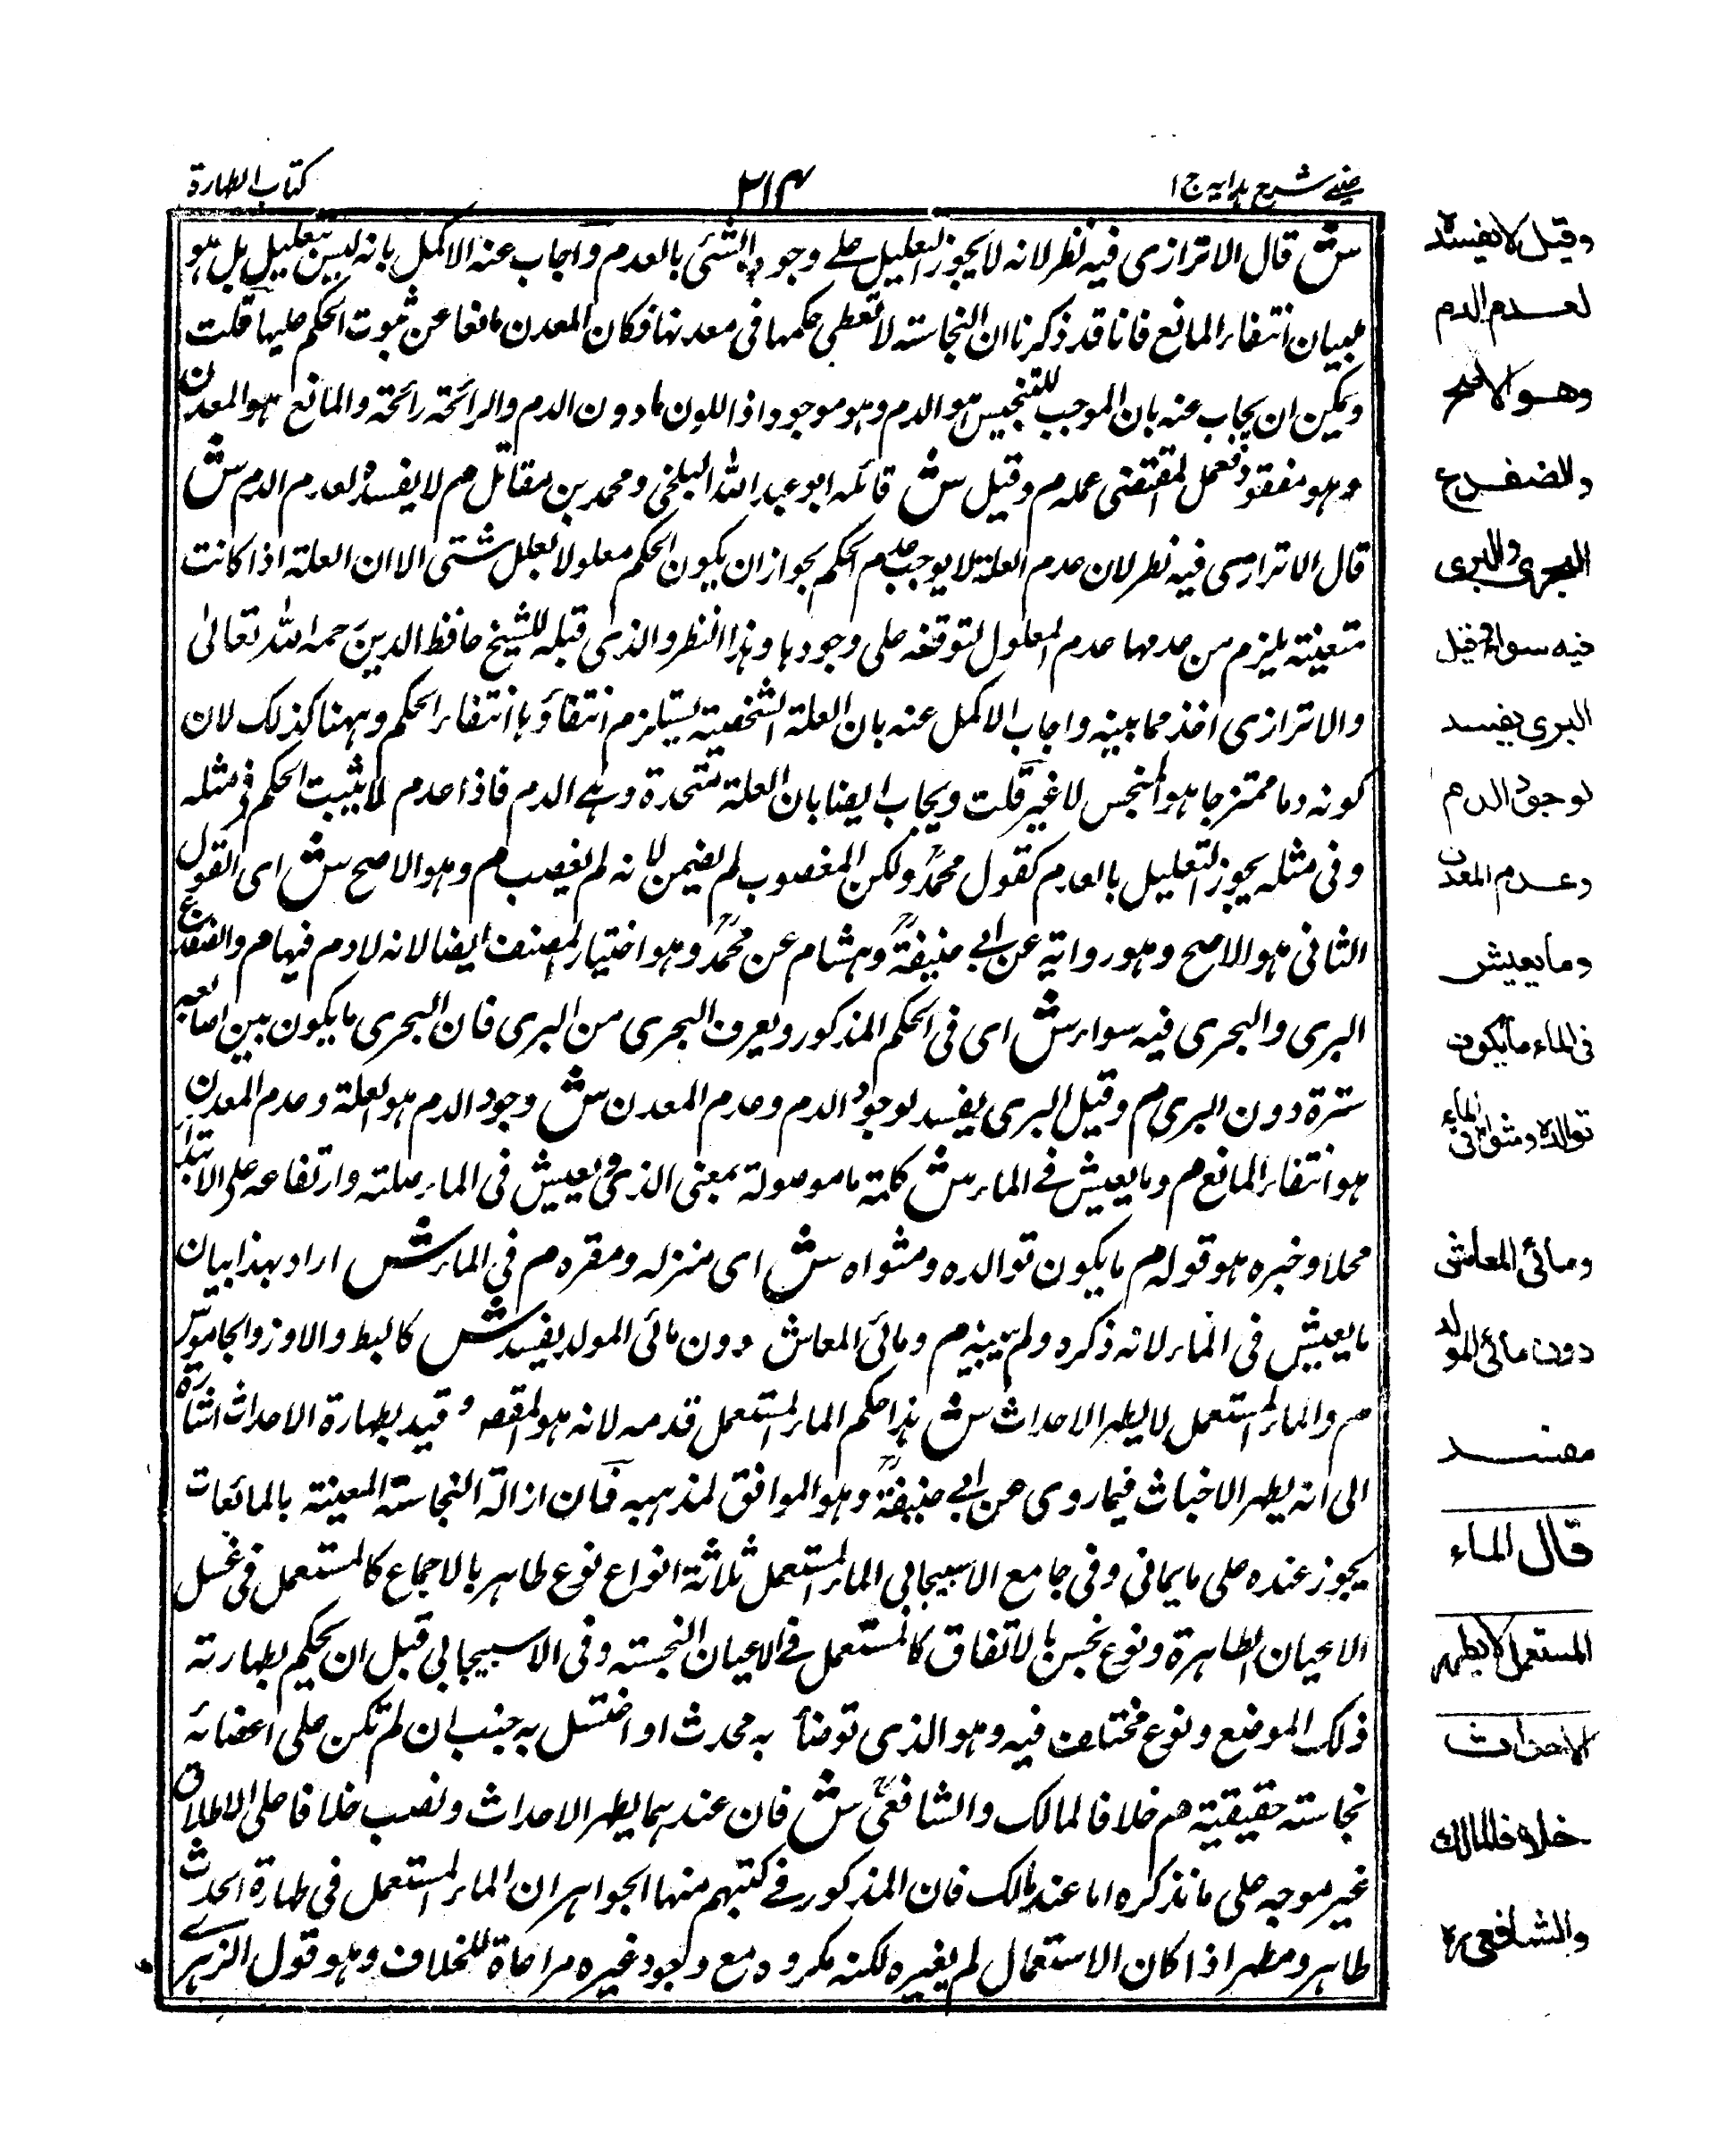 عینی شرح ہدایہ ج ۱
۳۱۴
کتاب الطہارة
ش قال الاترازی فیه نظر لانه لا یجوز التعلیل علی وجود الشئی بالعدم واجاب عنه الاکمل بانه لیس بتعلیل بل هو
لبیان انتفاء المانع فانا قد ذکرنا ان النجاسته لا تعطی حکمها فی معدنها فکان المعدن مانعا عن ثبوت الحکم علیها قلت
ویمکن ان یجاب عنه بان الموجب للتنجیس هو الدم وهو موجود اذ اللون مادون الدم والرائحته رائحته والمانع هو المعدن
وهو مفقود فعمل المقتضی عمله م وقیل ش قائله ابو عبد الله البلخی ومحمد بن مقاتل م لا یفسده لعدم الدم ش
قال الاترازی فیه نظر لان عدم العلة لا یوجب عدم الحکم بجواز ان یکون الحکم معلولا بعلل شتی الا ان العلة اذا کانت
متعینته یلزم من عدمها عدم المعلول لتوقفه علی وجودها وهذا النظر والذی قبله للشیخ حافظ الدین رحمه الله تعالی
والاترازی اخذ مما بینه واجاب الاکمل عنه بان العلة الشخصیة یستلزم انتفاؤها انتفاء الحکم وههنا کذلک لان
کونه دما ممتزجا هو المنجس لا غیر قلت ویجاب ایضا بان العلة متحدة وهے الدم فاذا عدم لا یثبت الحکم فی مثله
وفی مثله یجوز التعلیل بالعدم کقول محمدؒ ولکن المغصوب لم یضمن لانه لم یغصب م وهو الاصح ش ای القول
الثانی هو الاصح وهو روایة عن ابی حنیفةؒ وهشام عن محمدؒ وهو اختیار المصنف ایضا لانه لا دم فیها م والضفدع
البری والبحری فیه سواء ش ای فی الحکم المذکور ویعرف البحری من البری فان البحری ما یکون بین اصابعه
سترة دون البری م وقیل البری یفسد لوجود الدم وعدم المعدن ش وجود الدم هو العلة وعدم المعدن
هو انتفاء المانع م وما یعیش فے الماء ش کلمة ما موصولة بمعنی الذی یعیش فی الماء صلته وارتفاعه علی الابتداء
محلا وخبره هو قوله م ما یکون توالده ومثواه ش ای منزله ومقره م فی الماء ش اراد بهذا بیان
ما یعیش فی الماء لانه ذکره ولم یبینه م ومائی المعاش دون مائی المولد یفسد ش کالبط والاوز والجاموس
م والماء المستعمل لا یطهر الاحداث ش هذا حکم الماء المستعمل قدمه لانه هو المقصود وقید بطهارة الاحداث اشارة
الی انه یطهر الاخباث فیما روی عن ابی حنیفةؒ وهو الموافق لمذهبه فان ازالة النجاسته المعینة بالمائعات
یجوز عنده علی ما یاتی وفی جامع الاسبیجابی الماء المستعمل ثلاثة انواع نوع طاهر بالاجماع کالمستعمل فی غسل
الاعیان الطاهرة ونوع نجس بالاتفاق کالمستعمل فے الاعیان النجسته وفی الاسبیجابی قبل ان یحکم بطهارته
ذلک الموضع ونوع مختلف فیه وهو الذی توضأ به محدث او اغتسل به جنب ان لم تکن علی اعضائه
نجاسته حقیقیة م خلافا لمالک والشافعیؒ ش فان عندهما یطهر الاحداث ونصب خلافا علی الاطلاق
غیر موجه علی ما نذکره اما عند مالک فان المذکور فے کتبهم منها الجواهر ان الماء المستعمل فی طهارة الحدث
طاهر ومطهر اذا کان الاستعمال لم یغیره لکنه مکروه مع وجود غیره مراعاة للخلاف وهو قول الزهرے
وقیل لا یفسده
لعدم الدم
وهو الاصح
والضفدع
البحری والبری
فیه سواء وقیل
البری یفسد
لوجود الدم
وعدم المعدن
وما یعیش
فی الماء ما یکون
توالده ومثواه فی الماء
ومائی المعاش
دون مائی المولد
مفسد
قال الماء
المستعمل لا یطهر
الاحداث
خلافا لمالک
والشافعی رہ